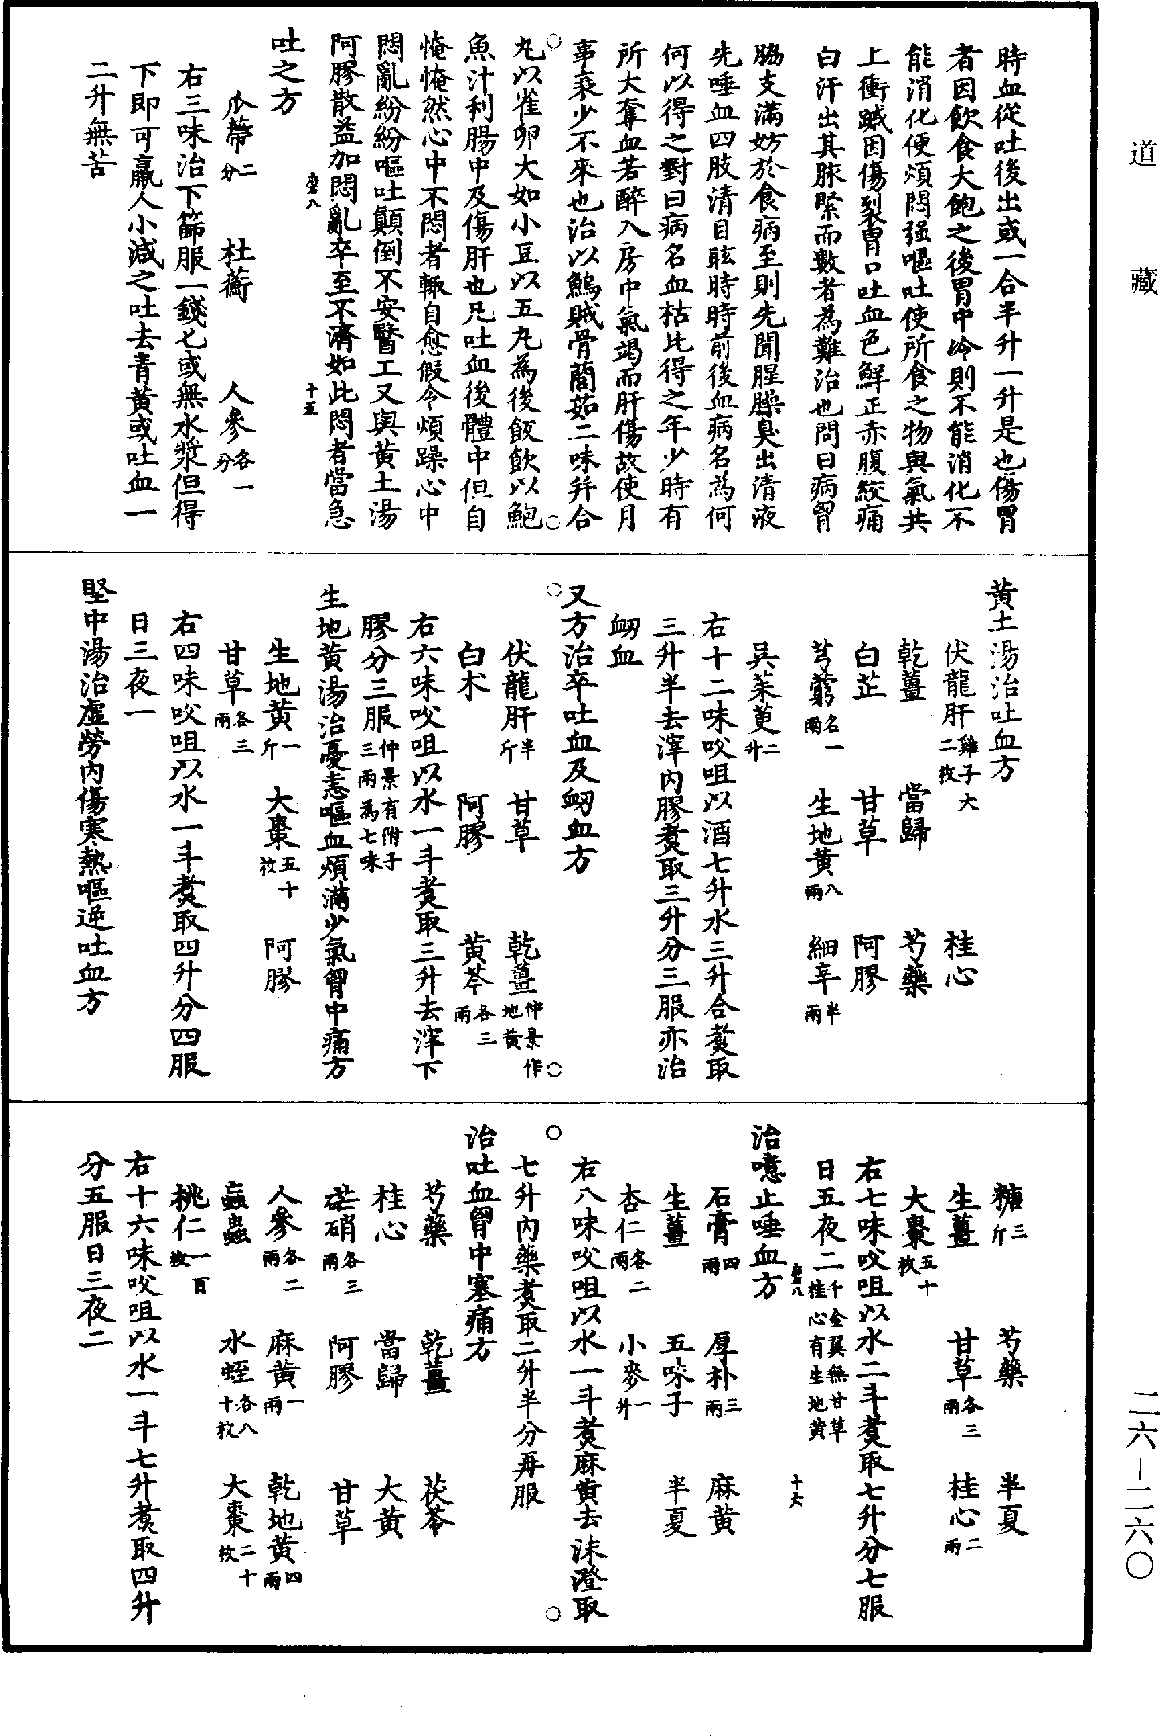 道藏
時血從吐後出或一合半升一升是也傷胃
者因飲食大飽之後胃中冷則不能消化不
能消化便煩悶強嘔吐使所食之物與氣共
上衝蹴因傷裂胃口吐血色鮮正赤腹絞痛
白汗出其脉緊而數者為難治也問曰病胷
脇支滿妨於食病至則先聞腥臊臭出清液
先唾血四肢清目眩時時前後血病名為何
何以得之對曰病名血枯比得之年少時有
所大奪血若醉入房中氣竭而肝傷故使月
事衰少不來也治以鰞賊骨䕡茹二味并合
丸以雀卵大如小豆以五丸為後飯飲以鮑
魚汁利腸中及傷肝也凡吐血後體中但自
㤿㤿然心中不悶者輒自愈假令煩躁心中
悶亂紛紛嘔吐顛倒不安醫工又與黃土湯
阿膠散益加悶亂卒至不濟如此悶者當急
吐之方
瓜蔕二分 杜蘅 人參各一分
右三味治下篩服一錢七或無水漿但得
下即可羸人小減之吐去青黃或吐血一
二升無苦
黃土湯治吐血方
伏龍肝雞子大二枚 桂心
乾薑 當歸 芍藥
白芷 甘草 阿膠
芎藭各一兩 生地黃八兩 細辛半兩
吳茱萸二升
右十二味㕮咀以酒七升水三升合煑取
三升半去滓內膠煑取三升分三服亦治
衂血
又方治卒吐血及衂血方
伏龍肝半斤 甘草 乾薑仲景作地黃
白术 阿膠 黃芩各三兩
右六味㕮咀以水一斗煑取三升去滓下
膠分三服仲景有附子三兩為七味
生地黃湯治憂恚嘔血煩滿少氣胷中痛方
生地黃一斤 大棗五十枚 阿膠
甘草各三兩
右四味㕮咀以水一斗煑取四升分四服
日三夜一
堅中湯治虛勞內傷寒熱嘔逆吐血方
糖三斤 芍藥 半夏
生薑 甘草各三兩 桂心二兩
大棗五十枚
右七味㕮咀以水二斗煑取七升分七服
日五夜二千金翼無甘草桂心有生地黃
治噫止唾血方
石膏四兩 厚朴三兩 麻黃
生薑 五味子 半夏
杏仁各二兩 小麥一升
右八味㕮咀以水一斗煑麻黃去沫澄取
七升內藥煑取二升半分再服
治吐血胷中塞痛方
芍藥 乾薑 茯苓
桂心 當歸 大黃
芒硝各三兩 阿膠 甘草
人參各二兩 麻黃一兩 乾地黃四兩
蝱蟲 水蛭各八十枚 大棗二十枚
桃仁一百枚
右十六味㕮咀以水一斗七升煑取四升
分五服日三夜二
十五
十六
二六—二六〇